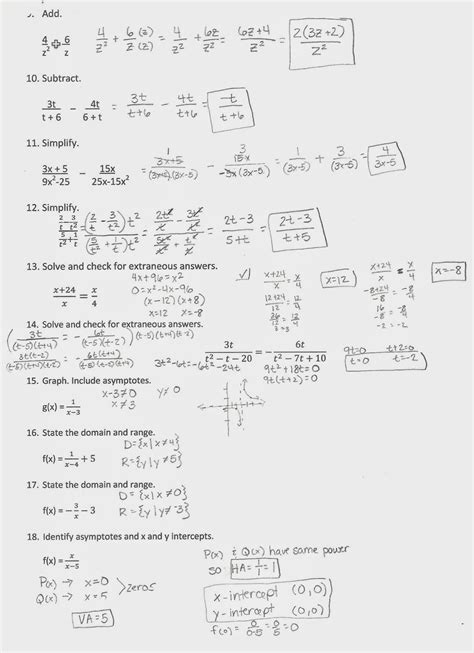 9. Add.
4/z² + 6/z   4/z² + 6(z)/z(z) = 4/z² + 6z/z² = 6z+4/z² = 2(3z+2)/z²
10. Subtract.
3t/t+6 − 4t/6+t = 3t/t+6 − 4t/t+6 = −t/t+6
11. Simplify.
3x+5/9x²-25 − 15x/25x-15x² = 3x+5/(3x+5)(3x-5) − 15x/-5x(3x-5) = 1/(3x-5) + 3/(3x-5) = 4/3x-5
12. Simplify.
2/t − 3/t² / 5/t + 1/t²   (2/t − 3/t²)t² / (5/t² + 1/t)t²   2t-3/5+t = 2t-3/t+5
13. Solve and check for extraneous answers.
x+24/x = x/4
4x+96=x²
0=x²-4x-96
(x-12)(x+8)
x=12 x=-8
√ x+24/x = x/4
12+24/12 = 12/4
3=3
x=12
x+24/x = x/4
-8+24/-8 = -8/4
16/-8 = -8/4
-2=-2
x=-8
14. Solve and check for extraneous answers.
3t/t² − t − 20 = − 6t/t² − 7t + 10
3t/(t-5)(t+4) = − 6t/(t-5)(t-2)
3t(t-2) = -6t(t+4)
3t²-6t=-6t²-24t
9t²+18t=0
9t(t+2)=0
9t=0 t+2=0
t=0 t=-2
15. Graph. Include asymptotes.
g(x) = 1/x−3
x-3≠0
x≠3
y≠0
16. State the domain and range.
f(x) = 1/x−4 + 5
D={x|x≠4}
R={y|y≠5}
17. State the domain and range.
f(x) = − 3/x − 3
D={x|x≠0}
R={y|y≠-3}
18. Identify asymptotes and x and y intercepts.
f(x) = x/x−5
P(x) → x=0
Q(x) → x=5
>zeros
VA=5
P(x) & Q(x) have same power
so HA=1/1=1
x-intercept (0,0)
y-intercept (0,0)
f(0)= 0/0-5 = 0/5 = 0